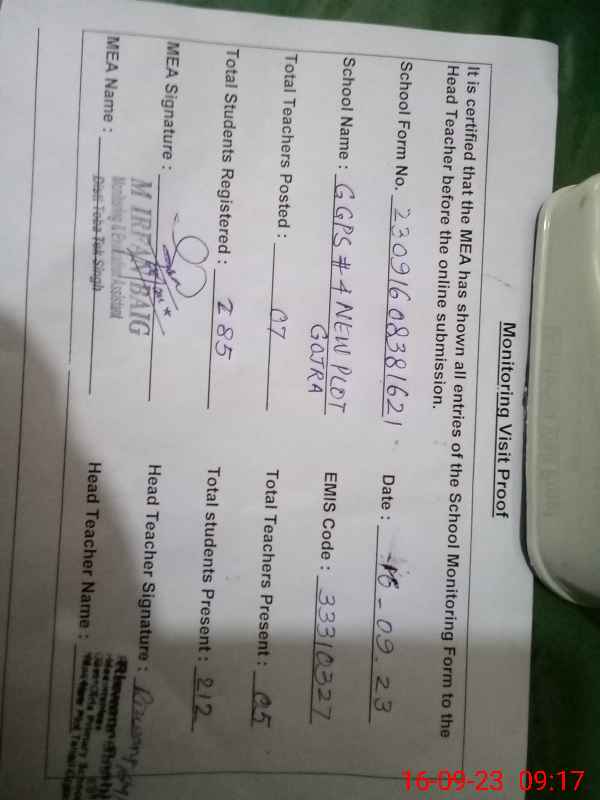 Monitoring Visit Proof
It is certified that the MEA has shown all entries of the School Monitoring Form to the
Head Teacher before the online submission.
School Form No. 23091608381621 Date : 16-09.23
School Name : GGPS # 4 NEW PLOT GOJRA EMIS Code : 33310327
Total Teachers Posted : 07 Total Teachers Present : 05
Total Students Registered : 285 Total students Present : 212
MEA Signature : Head Teacher Signature :
M IRFAN BAIG
Monitoring & Evaluation Assistant
MEA Name : Distt Toba Tek Singh Head Teacher Name :
Primary School
16-09-23 09:17